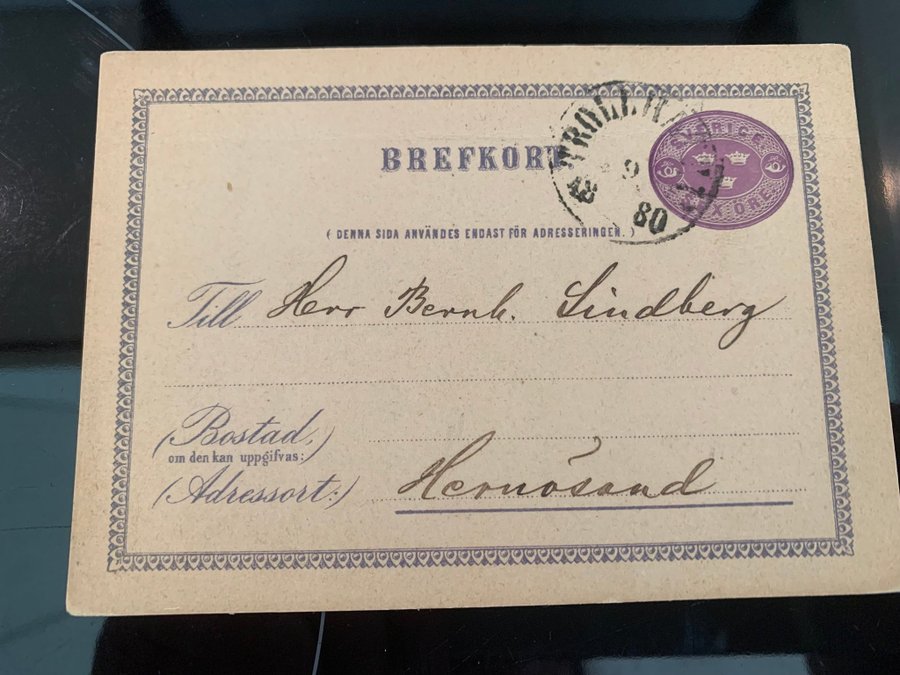 BREFKORT
SVERIGE
SEX ÖRE
TROLLHÄ
9
80
( DENNA SIDA ANVÄNDES ENDAST FÖR ADRESSERINGEN. )
Till Herr Bernh. Lindberg
(Bostad,)
om den kan uppgifvas:
(Adressort:) Hernösand